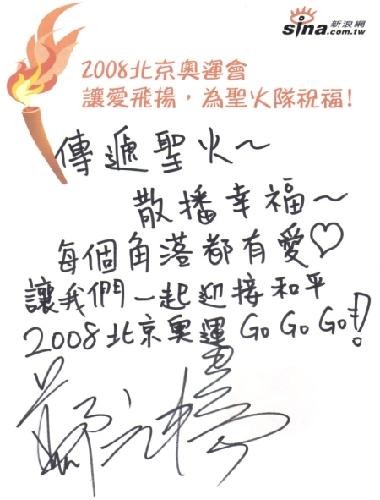 sina 新浪網
.com.tw
2008北京奧運會
讓愛飛揚，為聖火隊祝福！
傳遞聖火～
散播幸福～
每個角落都有愛♡
讓我們一起迎接和平
2008北京奧運 Go Go Go!